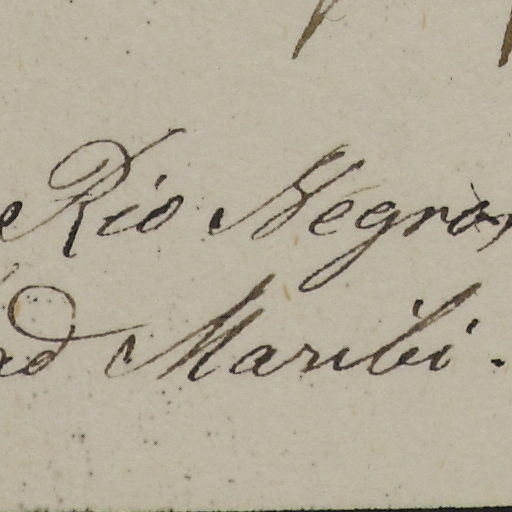 Rio Negro,
ad Maribi.